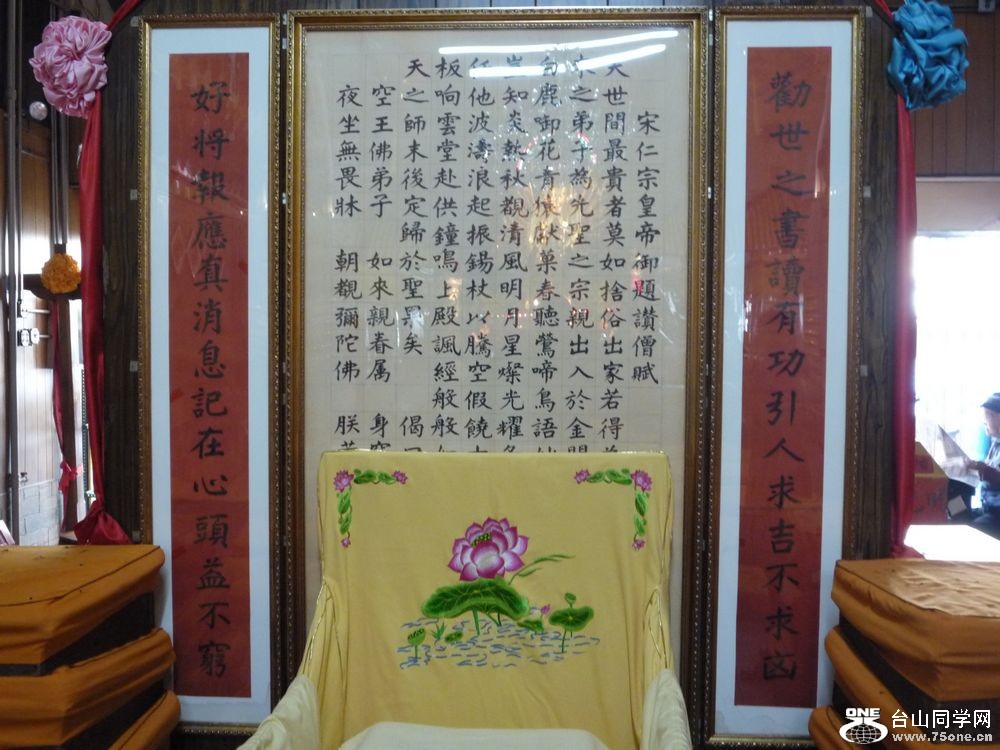 勸世之書讀有功引人求吉不求凶
宋仁宗皇帝御題讚僧賦
世間最貴者莫如捨俗出家若得
之弟子為先聖之宗親出入於金門
鹿啣花青猿獻菓春聽鶯啼鳥語
豈知炎熱秋觀清風明月星燦光耀
任他波濤浪起振錫杖以騰空假饒
板响雲堂赴供鐘鳴上殿諷經般般
天之師末後定歸於聖果矣 偈
空王佛弟子 如來親眷属 身
夜坐無畏牀 朝觀彌陀佛 朕
好将報應真消息記在心頭益不窮
ONE
台山同学网
www.75one.cn